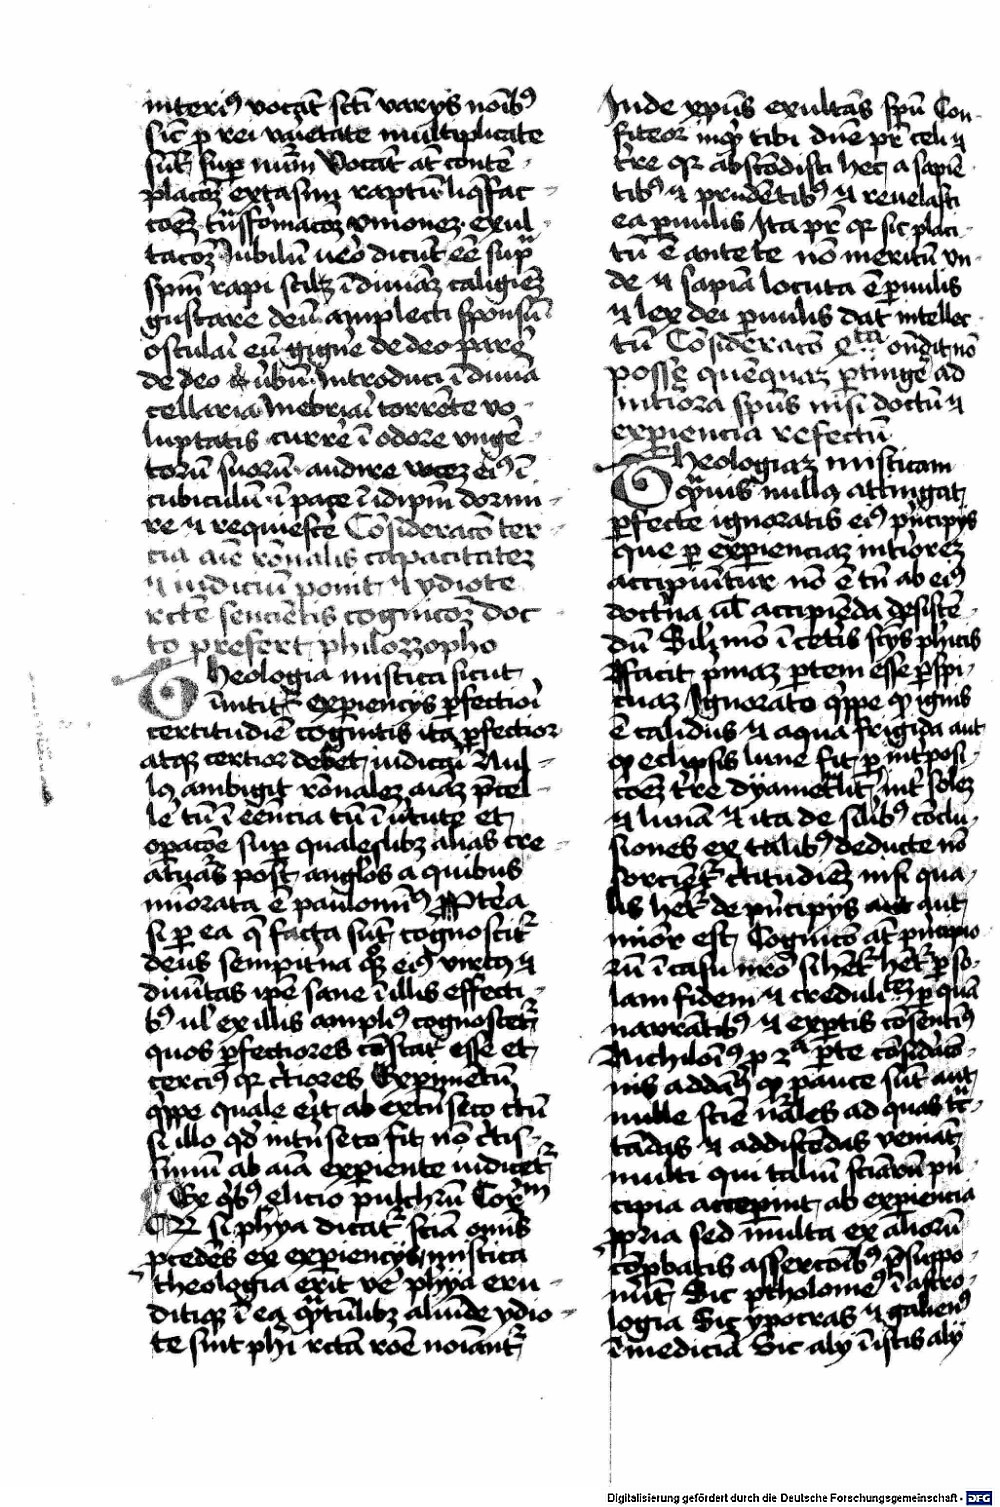 interi⁹ vocāt sctī varys noībꝰ
sic̄ ꝑ rei varietate multiplicate
sūt sup nūm Vocāt at̄ contē
placōeꝫ extasim raptū liq̄fac
cōeꝫ trāsfōmacōeꝫ vnioneꝫ exul
tacōeꝫ Jubilū ūo dicūt eē sup
spm̄ rapi scilꝫ ī diuinā caligīeꝫ
gustare deū amplecti sponsū
osculari eū gignē de deo parē
de deo verbū Introduci ī diuīa
cellaria Inebriari torrēte vo
luptatis currē ī odore vngē
torū suorū audire voceꝫ ei⁹ ī
cubiculū ī pace ī idipm̄ dormi
re ⁊ requiescē Cōsideracō ter
cia aīe rōnalis capacitateꝫ
⁊ iudiciū ponit ⁊ ydiote
rctē sencientis cognicōeꝫ doc
to prefert philozzopho
Theologia mistica sicut
īnitit᷑ experiencijs ꝑfectiori
certitudīe cognitis ita ꝑfectior
atqꝫ certior debet iudicari Nul
lꝯ ambigit rōnaleꝫ aīaꝫ p̄cel
lē tū ī eēncia tū ī v̄tute et
oꝑacōe sup qualeslibꝫ alias cre
aturas post anglōs a quibus
mīorata ē paulomī⁹ Pretea
si ꝑ ea q̄ facta sūt cognoscit᷑
deus sempitna qꝫ ei⁹ virtꝯ ⁊
diuītas ipē sane ī illis effecti
bꝰ vl̄ ex illis ampli⁹ cognoscet᷑
quos ꝑfectiores cōstat esse et
cerci⁹ qꝛ c̄tiores Experimētū
q̄ppe quale erit ab extn̄seco c̄tū
si illo qd̄ intn̄seco fit nō c̄tis
simū ab aīa experiente iudicet᷑
Ex q̄bꝰ elicio pulchrū Corꝫm
Qꝛ si phya dicat᷑ sciā omīs
ꝓcedēs ex experiencijs mistica
theologia erit vē phya eru
ditiqꝫ ī ea q̄tūlibꝫ aliūde ydio
te sint phī rctā rōe noīant᷑
Inde xpūs exultās spū Con
fiteor inq̄ tibi dn̄e pr̄ celi ⁊
t̄re qꝛ abscōdisti hec a sapiē
tibꝰ ⁊ prudētibꝰ ⁊ reuelasti
ea ꝑuulis Ita pr̄ qꝛ sic placi
tū ē ante te nō meritū vn
de ⁊ sapīa locuta ē ꝑuulis
⁊ lex dei ꝑuulis dat intellec
tū Cōsideracō q̄rta ōndit nō
posse queqꝫ ꝑtingē ad
intiora spūs nisi doctū ⁊
experiencia refectū
Theologiaꝫ misticam
q̄uis nullꝯ attingat
ꝑfecte ignoratis ei⁹ pn̄cipijs
que ꝑ experienciaꝫ intioreꝫ
accipiūtur nō ē tn̄ ab ei⁹
doctrīa vl̄ accipiēda desistē
dū Silꝫ mō ī ceteris sctijs pl̄ricis
efficit pmaꝫ ꝑtem esse ꝑspi
cuaꝫ Ignorato q̄ppe ꝙ ignis
ē calidus ⁊ aqua frigida aut
ꝙ eclipsis lune fit ꝑ intposi
cōeꝫ t̄re dyamet̄lit int̄ soleꝫ
⁊ lunā ⁊ ita de silibꝰ cōclu
siones ex talibꝰ deducte nō
sorciēt᷑ c̄titudīeꝫ nisi qua
lis hēt᷑ de pn̄cipijs aut aut
mīor est Cognicō at̄ pn̄cipio
rū ī casu nr̄o si hēt᷑ hēt᷑ ꝑ so
lam fidem ⁊ credulitateꝫ ꝑ quā
narrātibꝰ ⁊ expertis cōsenti⁹
Nichilomī⁹ ꝓ 2ᵃ ꝑte cōsidācō
nis addam⁹ ꝙ pauce sūt aut
nulle sciē nr̄ales ad quas tc̄
tādas ⁊ addiscēdas veniāt
multi qui taliū sciārū pn̄
cipia acceperint ab experiencia
ꝓpria sed multa ex alioru
cōprobatis assercōibꝰ p̄suppo
nūt Sic ptholome⁹ ī astro
logia Sic ypocras ⁊ galien⁹
ī mediciā Sic aly ī istis aly
Digitalisierung gefördert durch die Deutsche Forschungsgemeinschaft - DFG